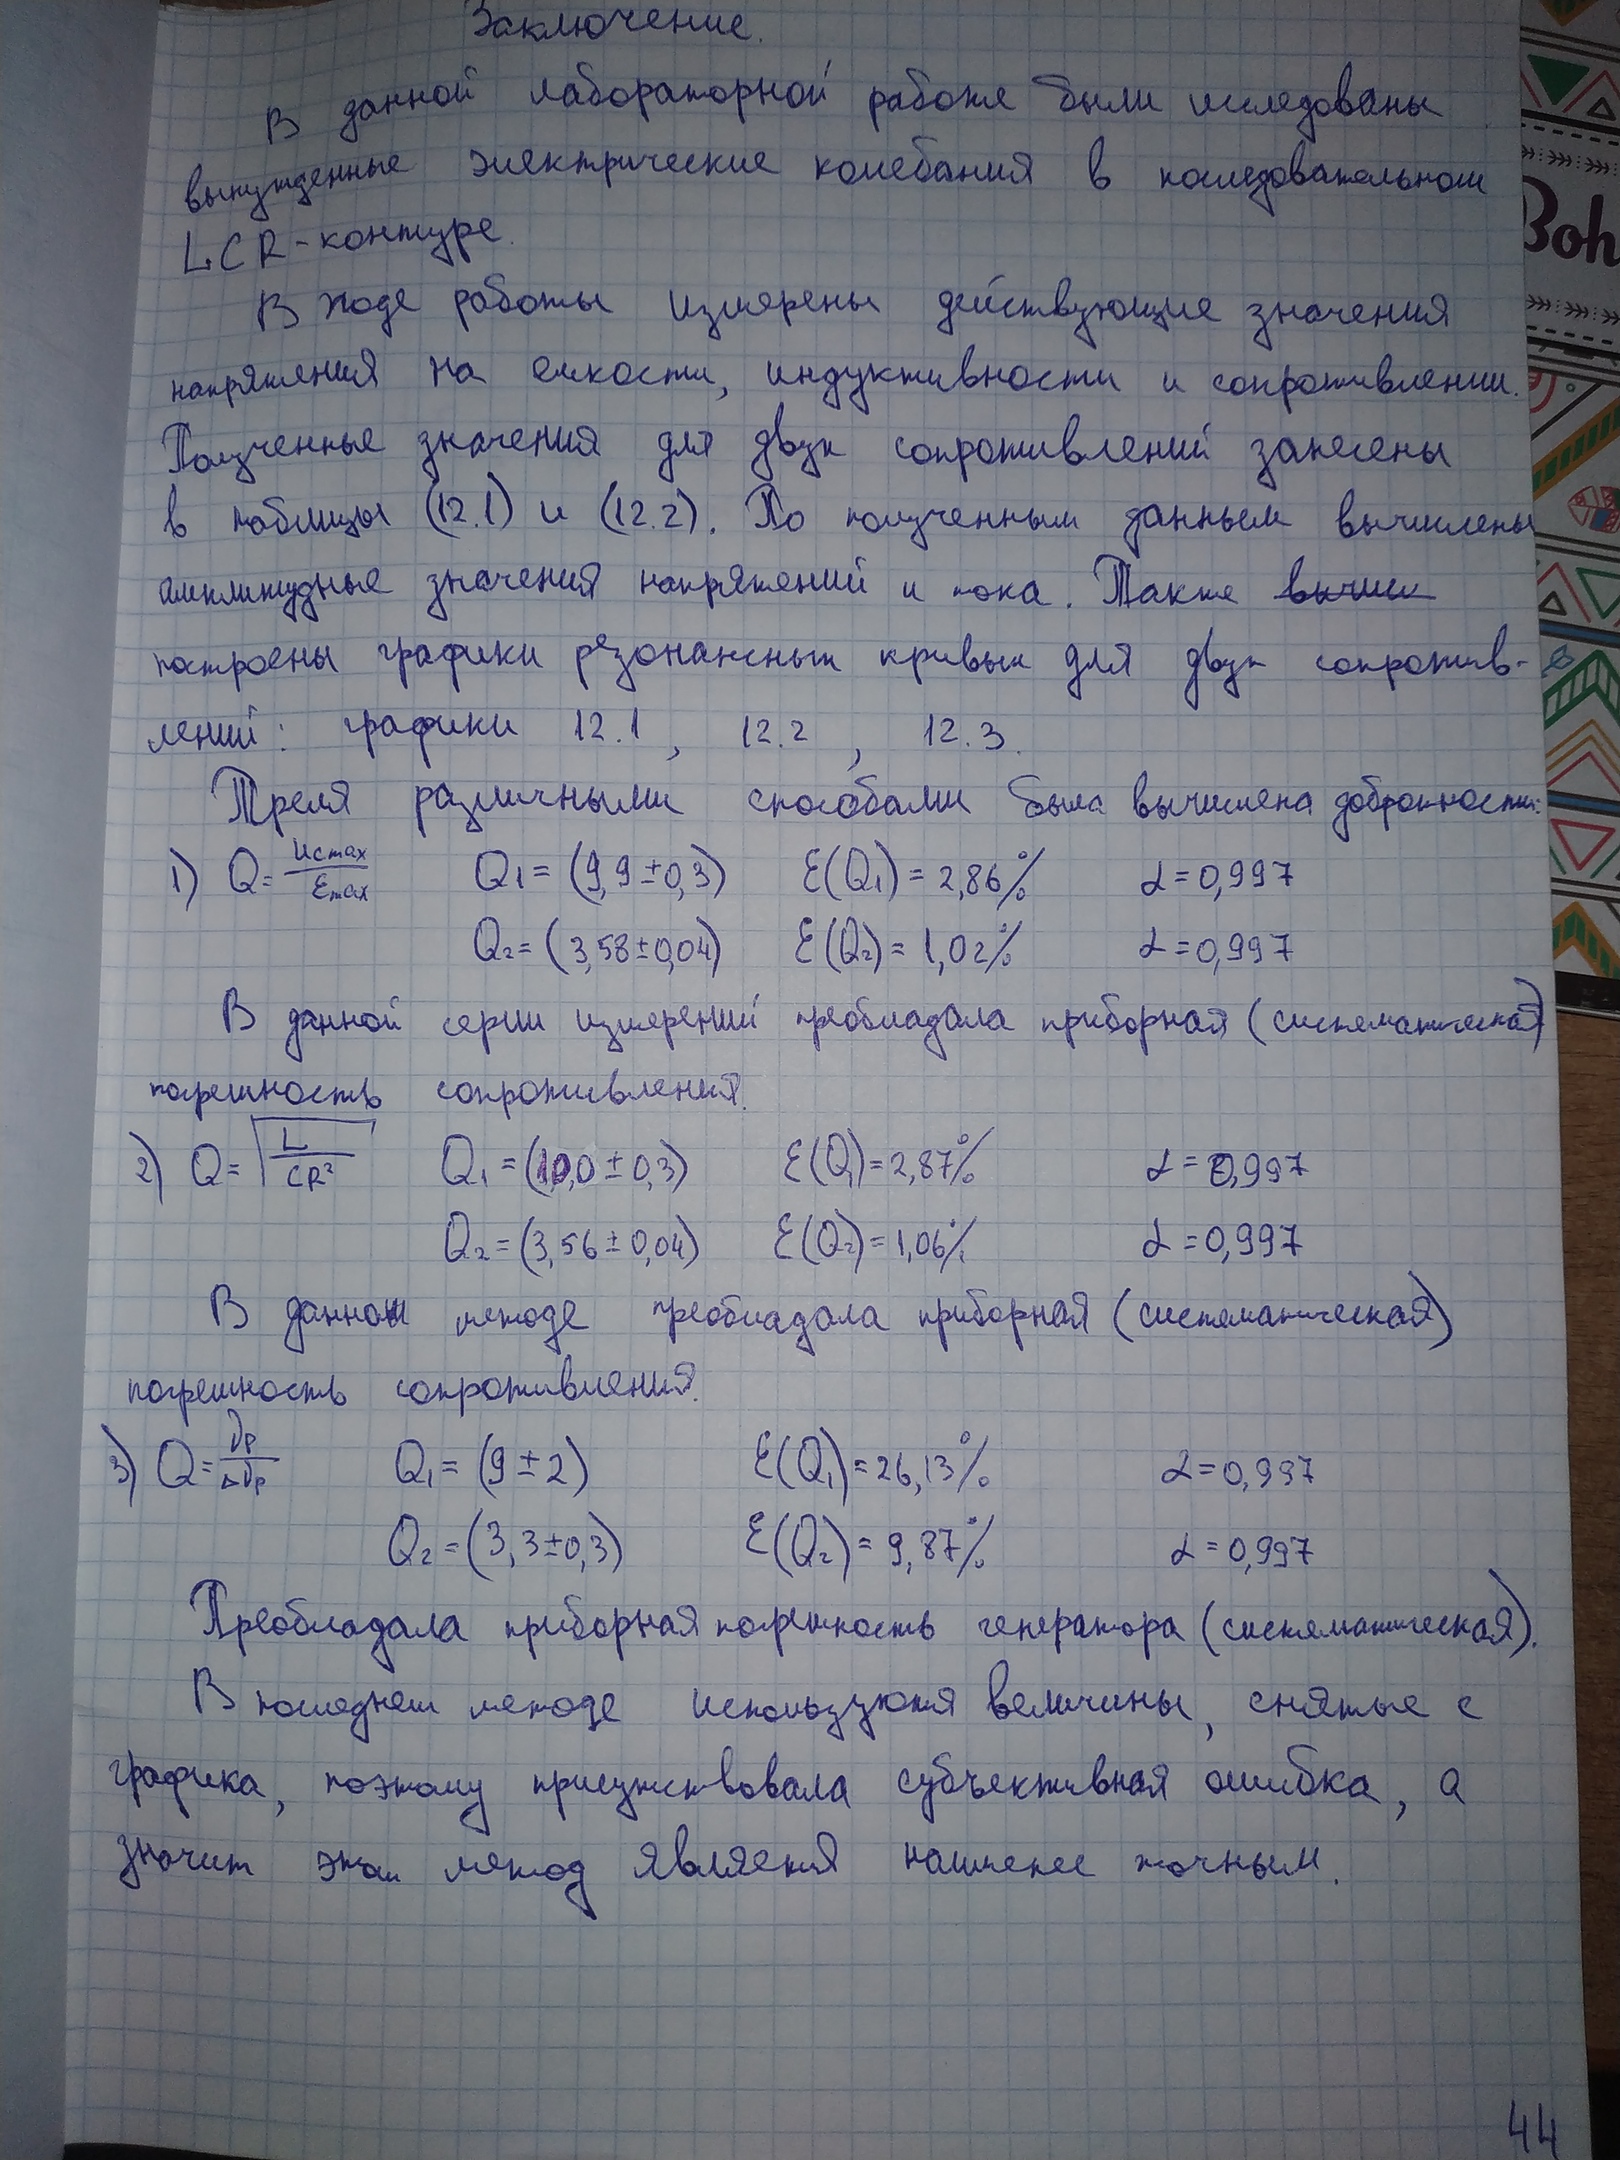 Заключение.
В данной лабораторной работе были исследованы
вынужденные электрические колебания в последовательном
LCR-контуре.
В ходе работы измерены действующие значения
напряжения на емкости, индуктивности и сопротивлении.
Полученные значения для двух сопротивлений занесены
в таблицы (12.1) и (12.2). По полученным данным вычислены
амплитудные значения напряжений и тока. Также вычисл
построены графики резонансных кривых для двух сопротив-
лений: графики 12.1, 12.2, 12.3.
Тремя различными способами была вычислена добротность:
1) Q = Ucmax / Ɛmax Q₁ = (9,9 ± 0,3) Ɛ(Q₁) = 2,86% α = 0,997
Q₂ = (3,58 ± 0,04) Ɛ(Q₂) = 1,02% α = 0,997
В данной серии измерений преобладала приборная (систематическая)
погрешность сопротивления.
2) Q = √(L / CR²) Q₁ = (10,0 ± 0,3) Ɛ(Q₁) = 2,87% α = 0,997
Q₂ = (3,56 ± 0,04) Ɛ(Q₂) = 1,06% α = 0,997
В данном методе преобладала приборная (систематическая)
погрешность сопротивления.
3) Q = νp / Δνp Q₁ = (9 ± 2) Ɛ(Q₁) = 26,13% α = 0,997
Q₂ = (3,3 ± 0,3) Ɛ(Q₂) = 9,87% α = 0,997
Преобладала приборная погрешность генератора (систематическая).
В последнем методе используются величины, снятые с
графика, поэтому присутствовала субъективная ошибка, а
значит этот метод является наименее точным.
44
Boh